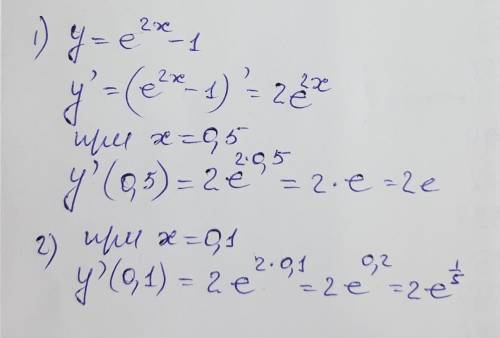 1) y = e^{2x} - 1
y' = (e^{2x} - 1)' = 2e^{2x}
при x = 0,5
y'(0,5) = 2e^{2·0,5} = 2·e = 2e
2) при x = 0,1
y'(0,1) = 2·e^{2·0,1} = 2e^{0,2} = 2e^{1/5}